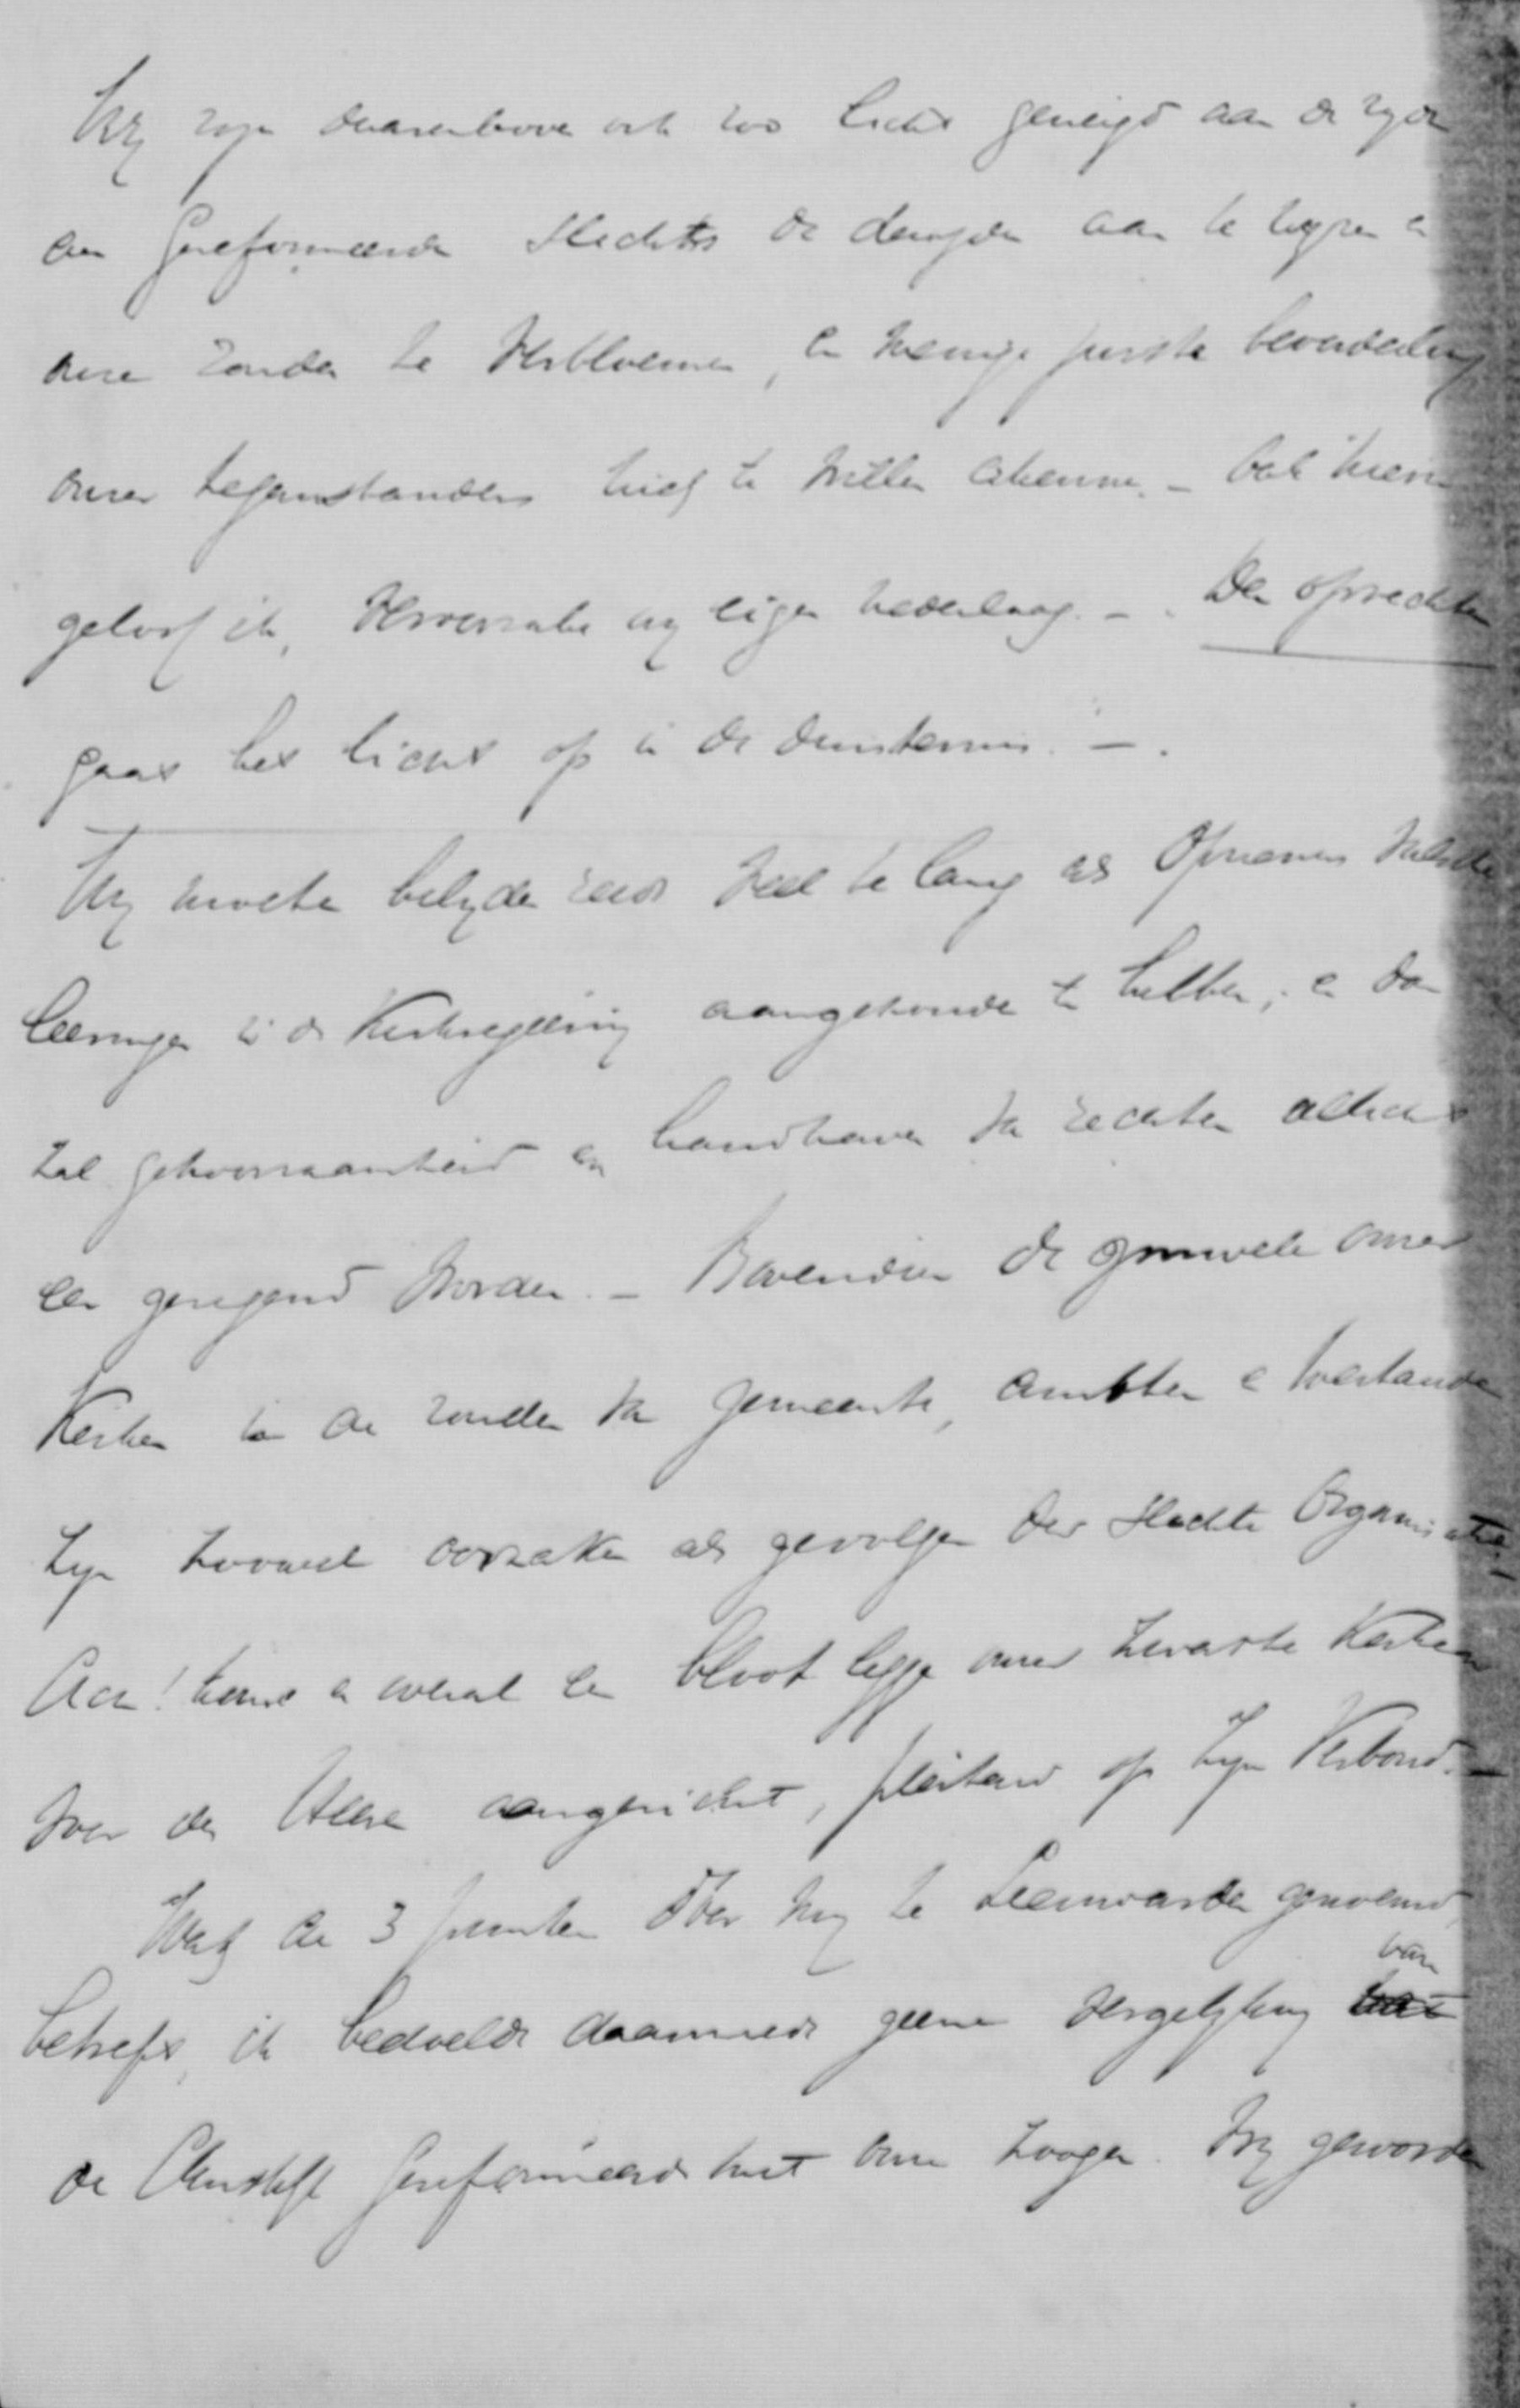 Wij zijn daarenboven ook zoo licht geneigd aan de zijde
der Gereformeerden slechts de deugden aan te wijzen en
onze zonden te verbloemen, en menige juiste beoordeeling
onzer tegenstanders niet te willen erkennen. – Ook hierin
geloof ik, veroorzaken wij eigen nederlaag. – Den oprechten
gaat het licht op in de duisternis. –.
Wij moeten belijden reeds veel te lang als Opzieners
leeringen in de Kerkregeering aangehouden te hebben; en dan
zal gehoorzaamheid en handhaven van rechten
een gezegend worden. – Bovendien de gruwelen onzer
Kerken en de zonden van gemeenten, ambten en toestanden
zijn zoowel oorzaken als gevolgen der slechte Organisatie. –
Ach! kome er overal een bloot leggen onzer zwarte Kerken
voor den Heere aangericht, pleitend op Zijn Verbond. –
Wat de 3 punten door mij te Leeuwarden genoemd,
betreft, ik bedoelde daarmede geene vergelijking van
de Christelijk Gereformeerde met onze zorgen. Wij geworden